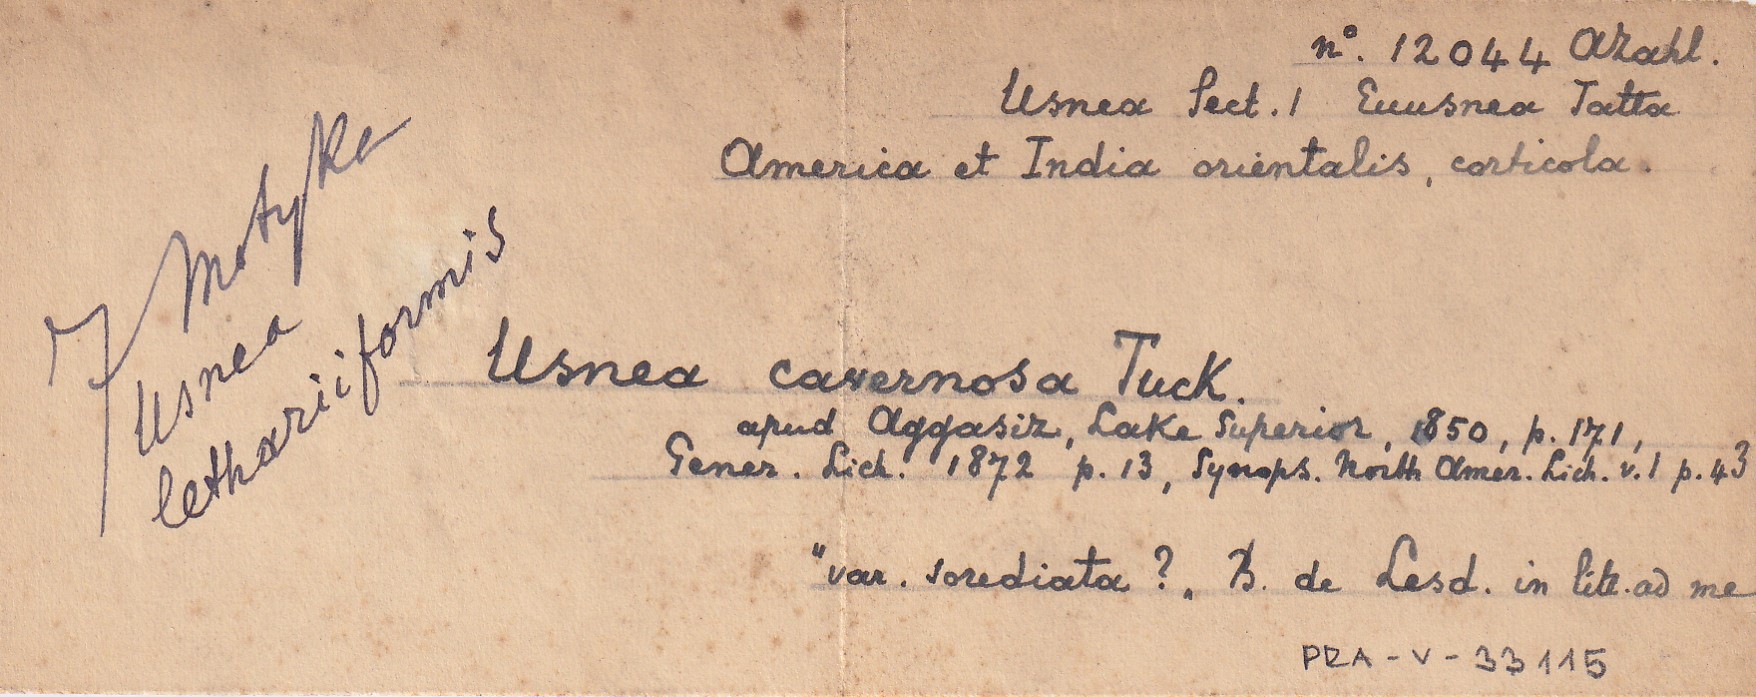 n°. 12044 AZahl.
Usnea Sect. 1 Euusnea Jatta
America et India orientalis, corticola.
Motyka
Usnea
lethariiformis
Usnea cavernosa Tuck.
apud Aggasiz, Lake Superior, 1850, p. 171,
Gener. Lich. 1872 p. 13, Synops. North Amer. Lich. v. 1 p. 43
"var. sorediata ?, B. de Lesd. in litt. ad me
PRA-V-33115